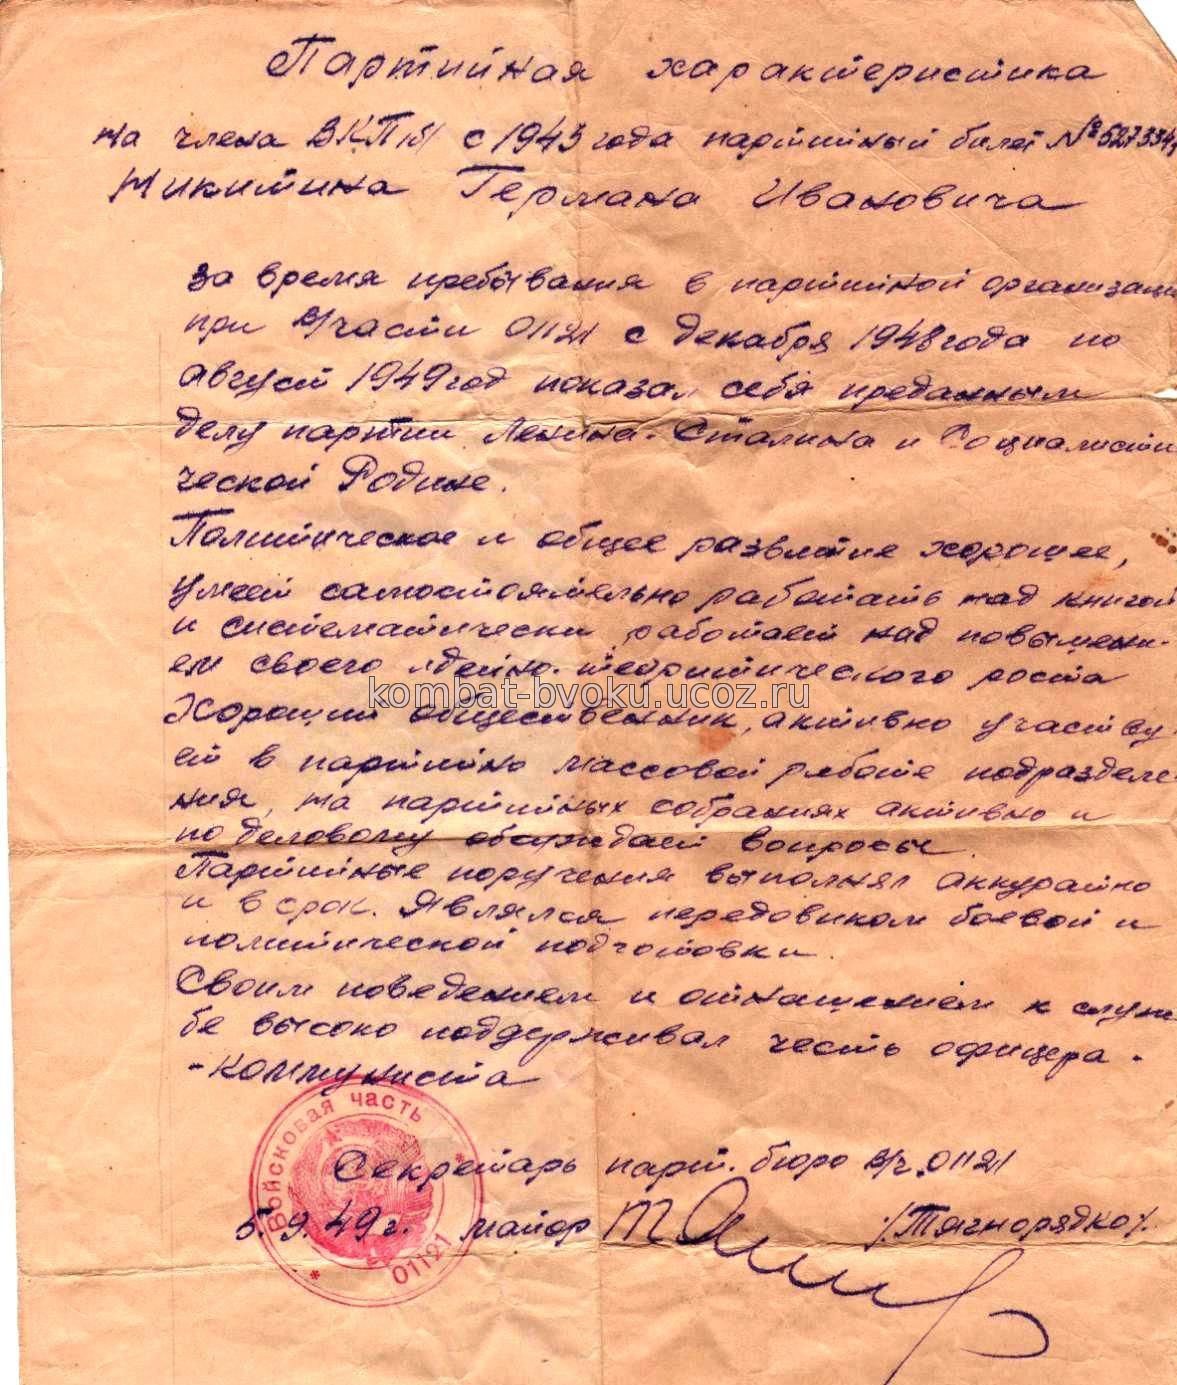 Партийная характеристика
на члена ВКП/б/ с 1943 года партийный билет №527334
Никитина Германа Ивановича
за время пребывания в партийной организаци
при в/части 01121 с декабря 1948 года по
август 1949 год показал себя преданным
делу партии Ленина-Сталина и Социалисти
ческой Родине.
Политическое и общее развитие хорошее,
умеет самостоятельно работать над книгой
и систематически работает над повышени-
ем своего идейно-теоритического роста
kombat-bvoku.ucoz.ru
Хороший общественник, активно участву-
ет в партийно массовой работе подразделе-
ния, на партийных собраниях активно и
по деловому обсуждает вопросы.
Партийные поручения выполнял аккуратно
и в срок. Являлся передовиком боевой и
политической подготовки.
Своим поведением и отнашением к служ
бе высоко поддерживал честь офицера-
-коммуниста
Войсковая часть
01121
Секретарь парт. бюро в/ч 01121
5.9.49г. майор /Тягнорядко/.